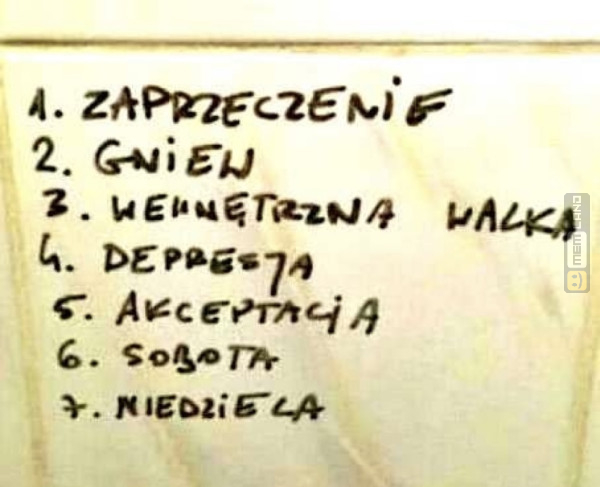 1. ZAPRZECZENIE
2. GNIEW
3. WEWNĘTRZNA WALKA
4. DEPRESJA
5. AKCEPTACJA
6. SOBOTA
7. NIEDZIELA
MEMLAND